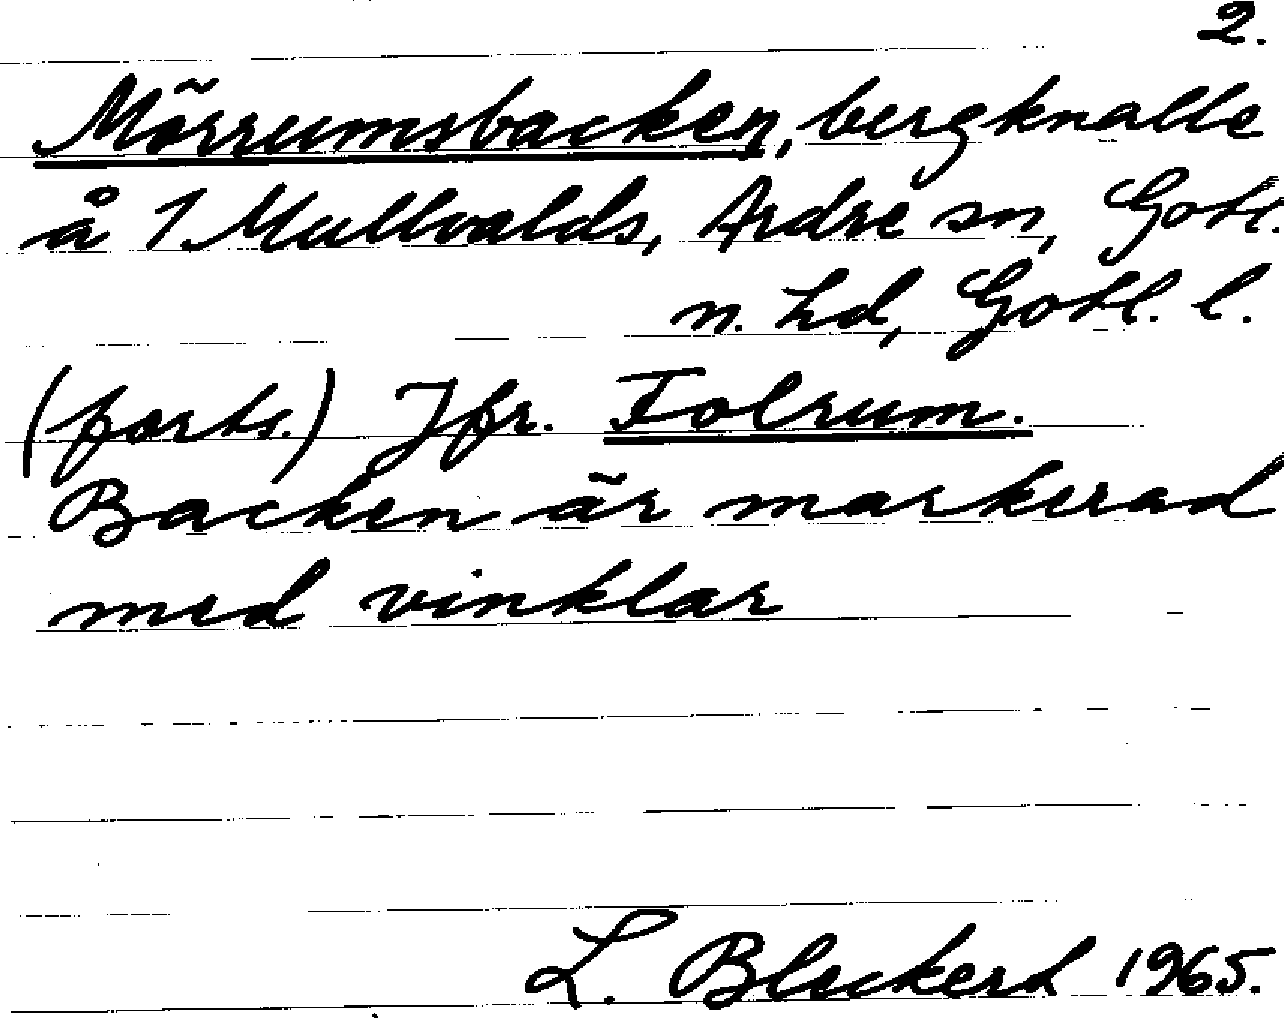 2.
Mörrumsbacken, bergknalle
å 1 Mullvalds, Ardre sn, Gotl.
n. hd, Gotl. l.
(forts.) Jfr. Folrum.
Backen är markerad
med vinklar
L. Bleckert 1965.